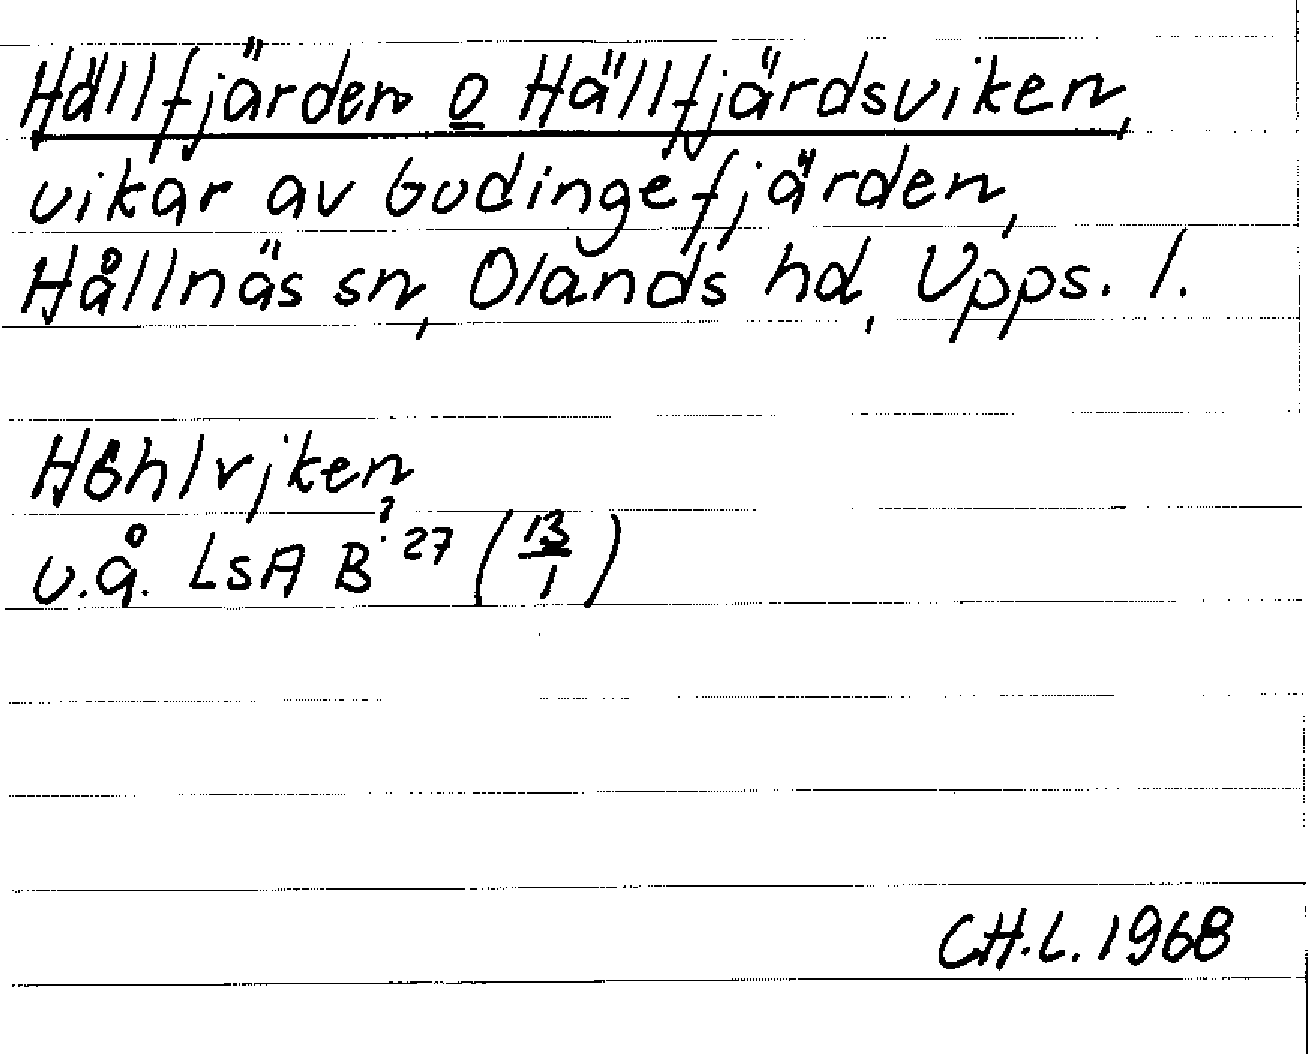 Hällfjärden o Hällfjärdsviken,
vikar av Gudingefjärden,
Hållnäs sn, Olands hd, Upps. l.
Höhlvjken
u.å. LsA B? 27 (13/1)
CH.L. 1968